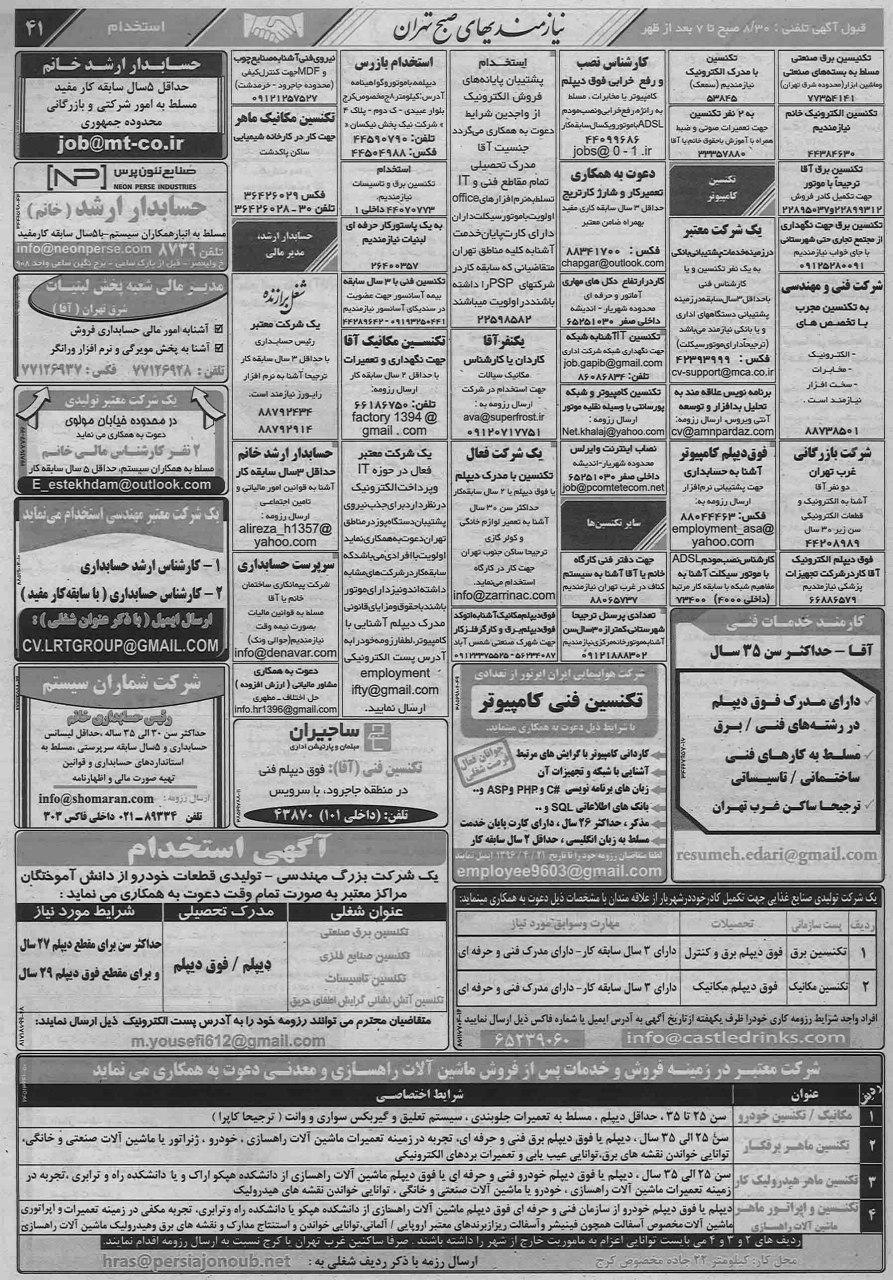 قبول آگهی تلفنی : ۸/۳۰ صبح تا ۷ بعد از ظهر
نیازمندیهای صبح تهران
استخدام
۴۱
تکنیسین برق صنعتی
مسلط به بسته‌های صنعتی
وماشین ابزار(محدوده شرق تهران)
۷۷۳۵۴۱۴۱
تکنسین الکترونیک خانم
نیازمندیم
۴۴۳۸۴۶۳۰
تکنسین برق آقا
ترجیحاً با موتور
جهت تکمیل کادر فروش
۲۲۸۹۵۰۳۷و۲۲۸۹۹۳۱۲
تکنسین برق جهت نگهداری
از مجتمع تجاری حتی شهرستانی
با جای خواب نیازمندیم
۰۹۱۲۵۲۸۰۰۹۱
شرکت فنی و مهندسی
به تکنسین مجرب
با تخصص های
- الکترونیک
- مخابرات
- سخت افزار
نیازمند است .
۸۸۷۳۸۵۰۱
شرکت بازرگانی
غرب تهران
دو نفر آقا
آشنا به الکترونیک و
قطعات الکتریکی
سن زیر ۳۰ سال
۴۴۲۰۸۹۸۹
فوق دیپلم الکترونیک
آقا کاردرشرکت تجهیزات
پزشکی نیازمندیم
۶۶۸۸۶۵۷۹
تکنسین
با مدرک الکترونیک
نیازمندیم (سمعک)
۵۳۸۴۵
به ۲ نفر تکنسین
جهت تعمیرات صوتی و ضبط
همراه با آموزش باحقوق خانم یا آقا
۳۳۳۵۷۸۸۰
تکنسین
کامپیوتر
یک شرکت معتبر
درزمینه‌خدمات‌پشتیبانی‌بانکی
به یک نفر تکنسین و یا
کارشناس فنی
باحداقل۳سال‌سابقه‌درزمینه
پشتیبانی دستگاههای اداری
و یا بانکی نیازمند می‌باشد
(ترجیحا‌دارای‌موتورسیکلت)
فکس : ۴۲۳۹۳۹۹۹
cv-support@mca.co.ir
برنامه نویس علاقه مند به
تحلیل بدافزار و توسعه
آنتی ویروس، ارسال رزومه:
cv@amnpardaz.com
فوق‌دیپلم کامپیوتر
آشنا به حسابداری
جهت پشتیبانی نرم‌افزار
ارسال رزومه:
فکس: ۸۸۰۴۴۴۶۳
employment_asa@
yahoo.com
کارشناس‌نصب‌مودم‌ADSL
با موتور سیکلت آشنا به
مفاهیم شبکه با سابقه کار مرتبط
(داخلی ۴۰۰۰) ۷۳۴۰۰
کارشناس نصب
و رفع خرابی فوق دیپلم
کامپیوتر یا مخابرات، مسلط
به رانژه‌رفع‌خرابی‌ونصب‌مودم
ADSLباموتوروبکسال‌سابقه‌کار
۴۴۰۹۹۶۸۶
jobs@ 0 - 1 .ir
دعوت به همکاری
تعمیرکار و شارژ کارتریج
حداقل ۳ سال سابقه کاری مفید
بهمراه ضامن معتبر
فکس : ۸۸۳۴۱۷۰۰
chapgar@outlook.com
کاردرارتفاع دکل های مهاری
آماتور و حرفه ای
محدوده شهریار - اندیشه
داخلی صفر ۶۵۲۵۱۰۳۰
تکنسین ITآشنابه شبکه
جهت نگهداری شبکه شرکت اداری
job.gapib@gmail.com
تلفن: ۸۶۰۸۶۸۳۴
تکنسین کامپیوتر و شبکه
پورسانتی با وسیله نقلیه موتور
ارسال رزومه:
Net.khalaj@yahoo.com
نصاب اینترنت وایرلس
محدوده شهریار-اندیشه
داخلی صفر ۶۵۲۵۱۰۳۰
job@pcomtetecom.net
سایر تکنسین‌ها
جهت دفتر فنی کارگاه
خانم یا آقا آشنا به سیستم
کناف در غرب تهران نیازمندیم
۸۸۰۶۵۷۳۷
تعدادی پرسنل ترجیحا
شهرستانی‌کمتراز۳۰سال‌سن
آشنابه‌موتورخانه‌مرکزی‌نیازمندیم
۰۹۱۲۱۸۸۸۳۰۲
استخدام
پشتیبان پایانه‌های
فروش الکترونیک
از واجدین شرایط
دعوت به همکاری می‌گردد
جنسیت آقا
مدرک تحصیلی
تمام مقاطع فنی و IT
تسلط‌به‌نرم‌افزارهای‌office
اولویت‌باموتورسیکلت‌داران
دارای کارت‌پایان‌خدمت
آشنابه کلیه مناطق تهران
متقاضیانی که سابقه کار در
شرکتهای PSP را داشته
باشند در اولویت میباشند
۲۲۵۹۸۵۸۲
یکنفرآقا
کاردان یا کارشناس
مکانیک سیالات
جهت استخدام در شرکت
ارسال رزومه به :
ava@superfrost.ir
۰۹۱۲۰۷۱۷۷۵۱
یک شرکت فعال
تکنسین با مدرک دیپلم
یا فوق دیپلم با ۲ سال سابقه‌کار
حداکثر سن ۳۰ سال
آشنا به تعمیر لوازم خانگی
و کولر گازی
ترجیحا ساکن جنوب تهران
جهت کار در کارگاه
استخدام می‌نماید.
info@zarrinac.com
فوق‌دیپلم‌مکانیک‌آشنابه‌اتوکد
فوق‌دیپلم‌برق‌و کارگرفلزکار
جهت شهرک صنعتی شمس آباد
۰۹۱۲۳۳۷۵۵۲۵-۵۶۲۳۴۰۸۷
استخدام بازرس
دیپلمه باموتوروگواهینامه
آدرس:کیلومتر۸ج‌مخصوص‌کرج
بلوار عبیدی- ک دوم- پلاک ۴
« شرکت نیک بخش نیکسان »
تلفن: ۴۴۵۹۰۷۹۰
فکس: ۴۴۵۰۴۹۸۸
استخدام
تکنسین برق و تاسیسات
نیازمندیم
۴۴۰۷۰۷۷۳ داخلی ۱
به یک پاستورکار حرفه ای
لبنیات نیازمندیم
۲۶۴۰۰۳۵۷
تکنسین فنی با ۳ سال سابقه
بیمه آسانسور جهت عضویت
در سندیکای آسانسور نیازمندیم
۴۴۲۸۹۶۴۲ - ۰۹۱۹۳۲۵۰۴۴۱
تکنسین مکانیک آقا
جهت نگهداری و تعمیرات
با حداقل ۲ سال سابقه کار
ارسال رزومه:
تلفن: ۶۶۱۸۶۷۵۰
factory 1394 @
gmail . com
یک شرکت معتبر
فعال در حوزه IT
و پرداخت‌الکترونیک
در نظر دارد برای‌جذب‌نیروی
پشتیبان‌دستگاه‌پوزدر‌مناطق
تهران‌دعوت‌به‌همکاری‌نماید
اولویت‌با افرادی می‌باشد که
سابقه‌کاردرشرکت‌های‌مشابه
داشته‌اندو‌نیز‌دارای‌موتور
باشندباحقوق‌ومزایای‌قانونی
مدرک دیپلم آشنایی با
کامپیوتر،لطفارزومه‌خودرا به
آدرس پست الکترونیکی
employment
ifty@gmail.com
ارسال نمایید.
نیروی‌فنی‌آشنابه‌صنایع‌چوب
و MDFجهت‌کنترل‌کیفی
(محدوده جاجرود - خرمدشت)
۰۹۱۲۱۲۵۷۵۲۷
تکنسین مکانیک ماهر
جهت کار در کارخانه شیمیایی
ساکن پاکدشت
فکس ۳۶۴۲۶۰۲۹
تلفن ۳۰ - ۳۶۴۲۶۰۲۸
حسابدار ارشد،
مدیر مالی
شغل برازنده
یک شرکت معتبر
رئیس حسابداری
با حداقل ۳ سال سابقه کار
ترجیحا آشنا به نرم افزار
راورز نیازمند است.
۸۸۷۹۲۴۳۴
۸۸۷۹۲۹۱۴
حسابدار ارشد خانم
حداقل ۳سال سابقه کار
آشنا به قوانین امور مالیاتی و
تامین اجتماعی
ارسال رزومه :
alireza_h1357@
yahoo.com
سرپرست حسابداری
شرکت پیمانکاری ساختمان
خانم یا آقا
مسلط به قوانین مالیات
بصورت نیمه وقت
نیازمندیم(حوالی ونک)
info@denavar.com
دعوت به همکاری
مشاور مالیاتی ( ارزش افزوده )
حل اختلاف ـ مطهری
info.hr1396@gmail.com
ساجیران
مبلمان و پارتیشن اداری
تکنسین فنی (آقا): فوق دیپلم فنی
در منطقه جاجرود، با سرویس
تلفن: (داخلی ۱۰۱) ۴۳۸۷۰
حسابدار ارشد خانم
حداقل ۵سال سابقه کار مفید
مسلط به امور شرکتی و بازرگانی
محدوده جمهوری
job@mt-co.ir
صنایع نئون پرس
NEON PERSE INDUSTRIES
حسابدار ارشد ( خانم )
مسلط به انبار‌همکاران سیستم-با۵سال سابقه کارمفید
info@neonperse.com
تلفن ۸۷۳۹
خ ولیعصر - قبل از پارک ساعی - برج نگین ساعی واحد ۹۰۸
مدیر مالی شعبه پخش لبنیات
شرق تهران ( آقا )
آشنابه امور مالی حسابداری فروش
آشنا به پخش مویرگی و نرم افزار ورانگر
تلفن: ۷۷۱۲۶۹۲۸ فکس: ۷۷۱۲۶۹۳۷
یک شرکت معتبر تولیدی
در محدوده خیابان مولوی
دعوت به همکاری می نماید
۲ نفر کارشناس مالی خانم
مسلط به همکاران سیستم، حداقل ۵ سال سابقه کار
E_estekhdam@outlook.com
یک شرکت معتبر مهندسی استخدام می‌نماید
۱ - کارشناس ارشد حسابداری
۲ - کارشناس حسابداری ( با سابقه کار مفید )
ارسال ایمیل ( با ذکر عنوان شغلی ) :
CV.LRTGROUP@GMAIL.COM
شرکت شماران سیستم
رئیس حسابداری خانم
حداکثر سن ۳۰ الی ۳۵ ساله ،حداقل لیسانس
حسابداری و ۵سال سابقه سرپرستی ،مسلط به
استانداردهای حسابداری و قوانین
تهیه صورت مالی و اظهارنامه
ارسال رزومه : info@shomaran.com
تلفن: ۸۹۳۳۴ - ۰۲۱ داخلی فاکس ۳۰۳
کارمند خدمات فنی
آقا - حداکثر سن ۳۵ سال
دارای مدرک فوق دیپلم
در رشته‌های فنی / برق
مسلط به کارهای فنی
ساختمانی / تاسیساتی
ترجیحا ساکن غرب تهران
resumeh.edari@gmail.com
شرکت هواپیمایی ایران ایرتور از تعدادی
تکنسین فنی کامپیوتر
با شرایط ذیل دعوت به همکاری مینماید.
جوانان فعال
فرصت شغلی
کاردانی کامپیوتر با گرایش های مرتبط
آشنایی با شبکه و تجهیزات آن
زبان های برنامه نویسی #C و PHP و ASP و..
بانک های اطلاعاتی SQL و ..
مذکر ، حداکثر ۲۶ سال ، دارای کارت پایان خدمت
مسلط به زبان انگلیسی، حداقل ۲ سال سابقه کار
لطفا متقاضیان رزومه خود را تا تاریخ ۲۱ / ۴ / ۱۳۹۶ ایمیل نمایند
employee9603@gmail.com
آگهی استخدام
یک شرکت بزرگ مهندسی - تولیدی قطعات خودرو از دانش آموختگان
مراکز معتبر به صورت تمام وقت دعوت به همکاری می نماید :
عنوان شغلی | مدرک تحصیلی | شرایط مورد نیاز
تکنسین برق صنعتی
تکنسین صنایع فلزی
تکنسین تاسیسات
تکنسین آتش نشانی گرایش اطفای حریق
دیپلم / فوق دیپلم
حداکثر سن برای مقطع دیپلم ۲۷ سال
و برای مقطع فوق دیپلم ۲۹ سال
متقاضیان محترم می توانند رزومه خود را به آدرس پست الکترونیک ذیل ارسال نمایند:
m.yousefi612@gmail.com
یک شرکت تولیدی صنایع غذایی جهت تکمیل کادرخود‌در‌شهریار‌از علاقه مندان با مشخصات ذیل دعوت به همکاری مینماید:
ردیف | پست سازمانی | تحصیلات | مهارت وسوابق‌مورد نیاز
۱ | تکنسین برق | فوق دیپلم برق و کنترل | دارای ۳ سال سابقه کار- دارای مدرک فنی و حرفه ای
۲ | تکنسین مکانیک | فوق دیپلم مکانیک | دارای ۳ سال سابقه کار- دارای مدرک فنی و حرفه ای
افراد واجد شرایط رزومه کاری خودرا ظرف یکهفته ازتاریخ آگهی به آدرس ایمیل یا شماره فاکس ذیل ارسال نمایید
info@castledrinks.com ۶۵۲۳۹۰۶۰
شرکت معتبر در زمینه فروش و خدمات پس از فروش ماشین آلات راهسازی و معدنی دعوت به همکاری می نماید
ردیف | عنوان | شرایط اختصاصی
۱ | مکانیک / تکنسین خودرو | سن ۲۵ تا ۳۵ ، حداقل دیپلم ، مسلط به تعمیرات جلوبندی ، سیستم تعلیق و گیربکس سواری و وانت ( ترجیحا کاپرا )
۲ | تکنسین ماهر برقکار | سن ۲۵ الی ۳۵ سال ، دیپلم یا فوق دیپلم برق فنی و حرفه ای، تجربه درزمینه تعمیرات ماشین آلات راهسازی ، خودرو ، ژنراتور یا ماشین آلات صنعتی و خانگی،
توانایی خواندن نقشه های برق،توانایی عیب یابی و تعمیرات بردهای الکترونیکی
۳ | تکنسین ماهر هیدرولیک کار | سن ۲۵ الی ۳۵ سال ، دیپلم یا فوق دیپلم خودرو فنی و حرفه ای یا فوق دیپلم ماشین آلات راهسازی از دانشکده هپکو اراک و یا دانشکده راه و ترابری ، تجربه در
زمینه تعمیرات ماشین آلات راهسازی ، خودرو یا ماشین آلات صنعتی و خانگی ، توانایی خواندن نقشه های هیدرولیک
۴ | تکنسین و اپراتور ماهر
ماشین آلات راهسازی | دیپلم یا فوق دیپلم خودرو از سازمان فنی و حرفه ای یا فوق دیپلم ماشین آلات راهسازی از دانشکده هپکو یا دانشکده راه وترابری، تجربه مکفی در زمینه تعمیرات و اپراتوری
ماشین آلات مخصوص آسفالت همچون فینیشر وآسفالت ریزازبرندهای معتبر اروپایی / آلمانی،توانایی خواندن و استنتاج مدارک و نقشه های برق وهیدرولیک ماشین آلات راهسازی
ردیف های ۲ و ۳ و ۴ می بایست توانایی اعزام به ماموریت خارج از شهر را داشته باشند. صرفا ساکنین غرب تهران یا کرج نسبت به ارسال رزومه اقدام نمایند.
محل کار: کیلومتر ۲۲ جاده مخصوص کرج
ارسال رزمه با ذکر ردیف شغلی به : hras@persiajonoub.net